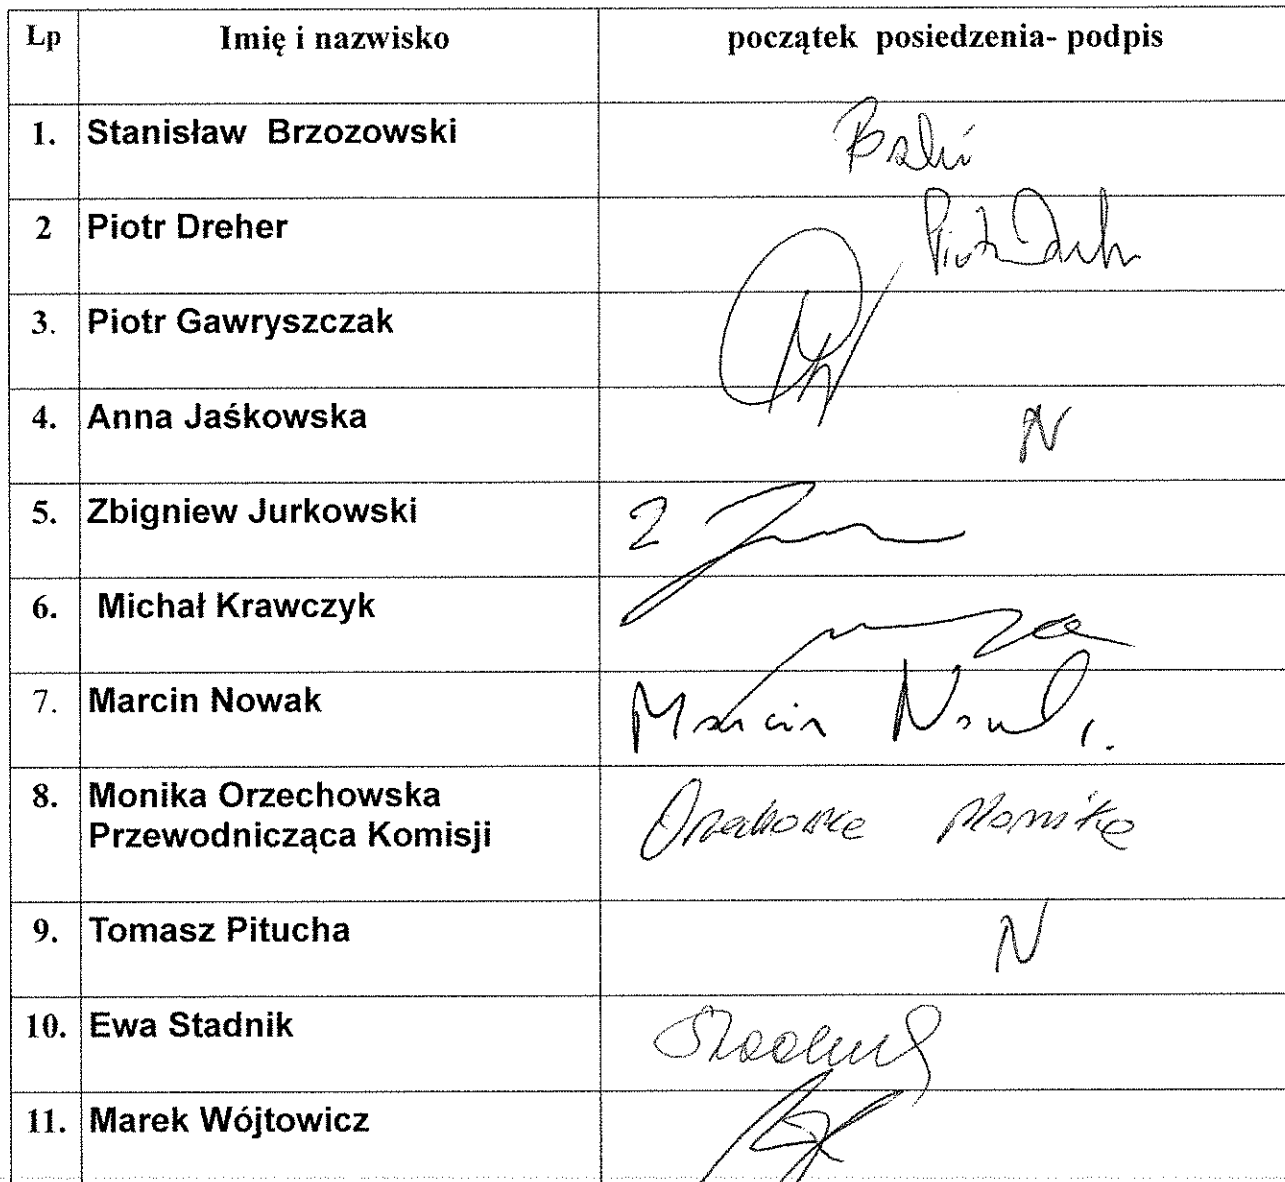 Lp Imię i nazwisko początek posiedzenia- podpis
1. Stanisław Brzozowski
2 Piotr Dreher Piotr Dreher
3. Piotr Gawryszczak
4. Anna Jaśkowska N
5. Zbigniew Jurkowski
6. Michał Krawczyk
7. Marcin Nowak Marcin Nowak
8. Monika Orzechowska
Przewodnicząca Komisji Orzechowska Monika
9. Tomasz Pitucha N
10. Ewa Stadnik Stadnik
11. Marek Wójtowicz